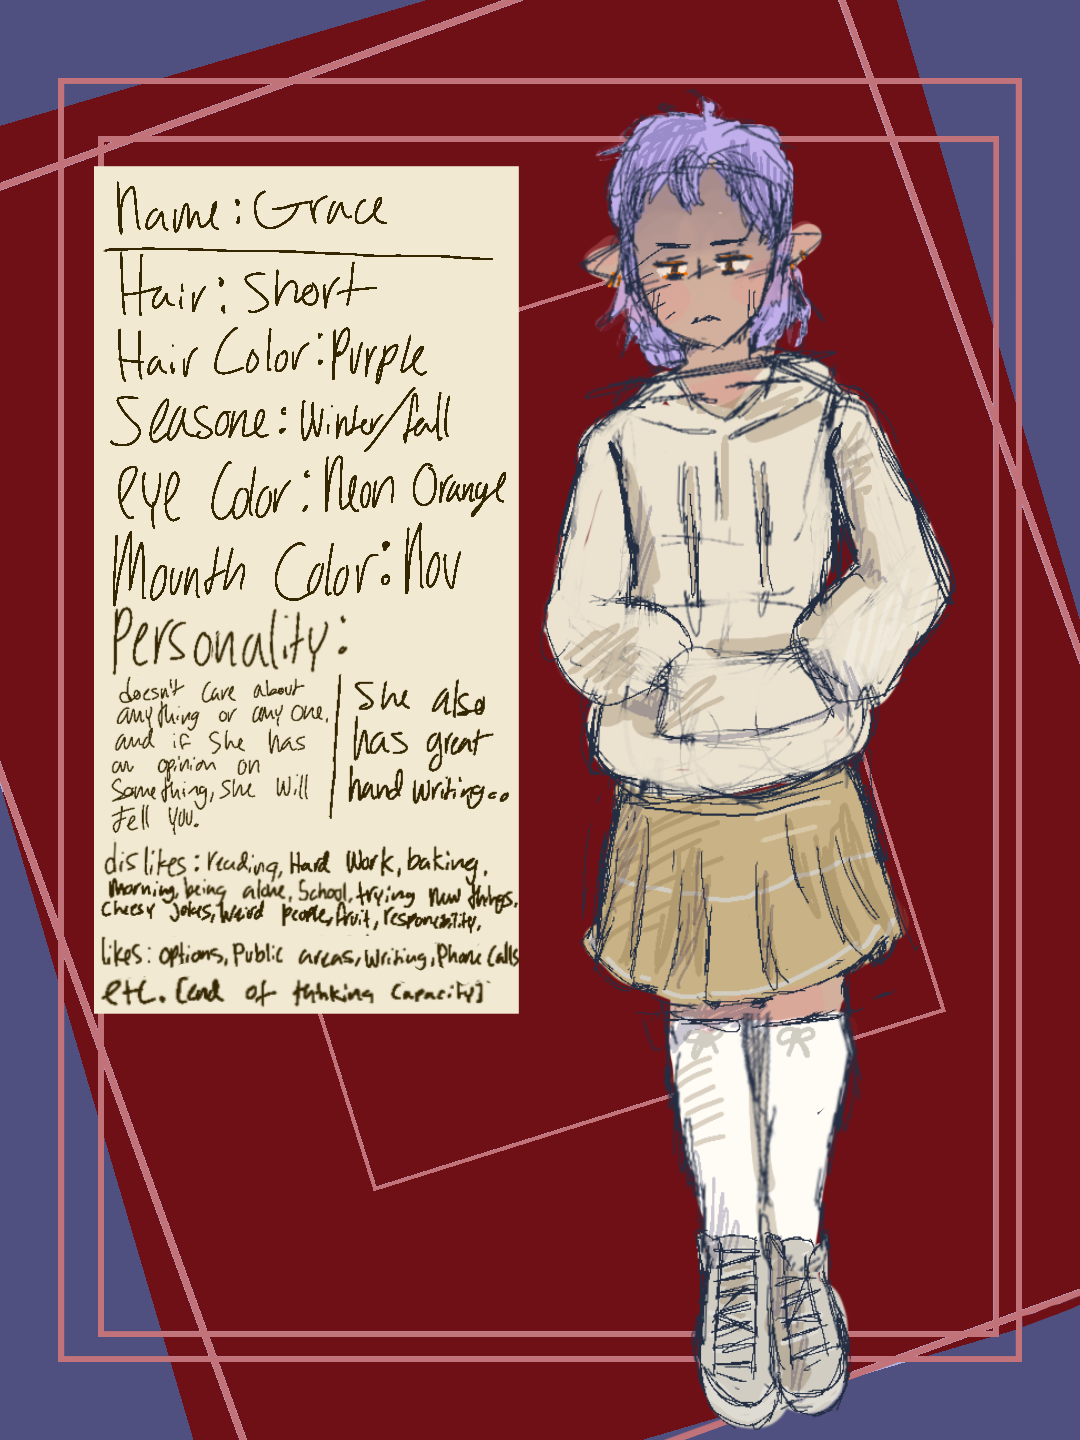 Name: Grace
Hair: Short
Hair Color: Purple
Seasone: Winter/fall
eye Color: Neon Orange
Mounth Color: Nov
Personality:
doesn't care about
anything or any one.
and if she has
an opinion on
Something, she will
tell you.
She also
has great
hand writing..
dislikes: reading, Hard Work, baking,
morning, being alone, School, trying new things,
Cheesy Jokes, Weird people, fruit, responsibility,
likes: options, Public areas, writing, Phone Calls
etc. [end of thinking Capacity]